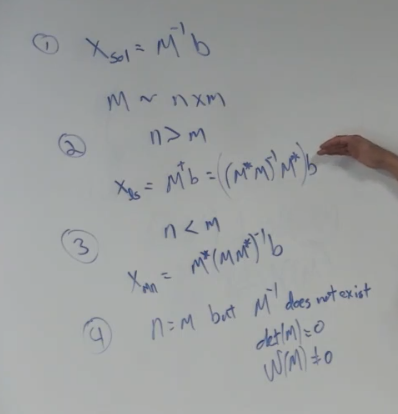 ① X_sol = M⁻¹b
M ~ n×m
② n > m
X_ss = M⁺b = ((M*M)⁻¹M*)b
③ n < m
X_mn = M*(MM*)⁻¹b
④ n=m but M⁻¹ does not exist
det(M)=0
N(M)≠0